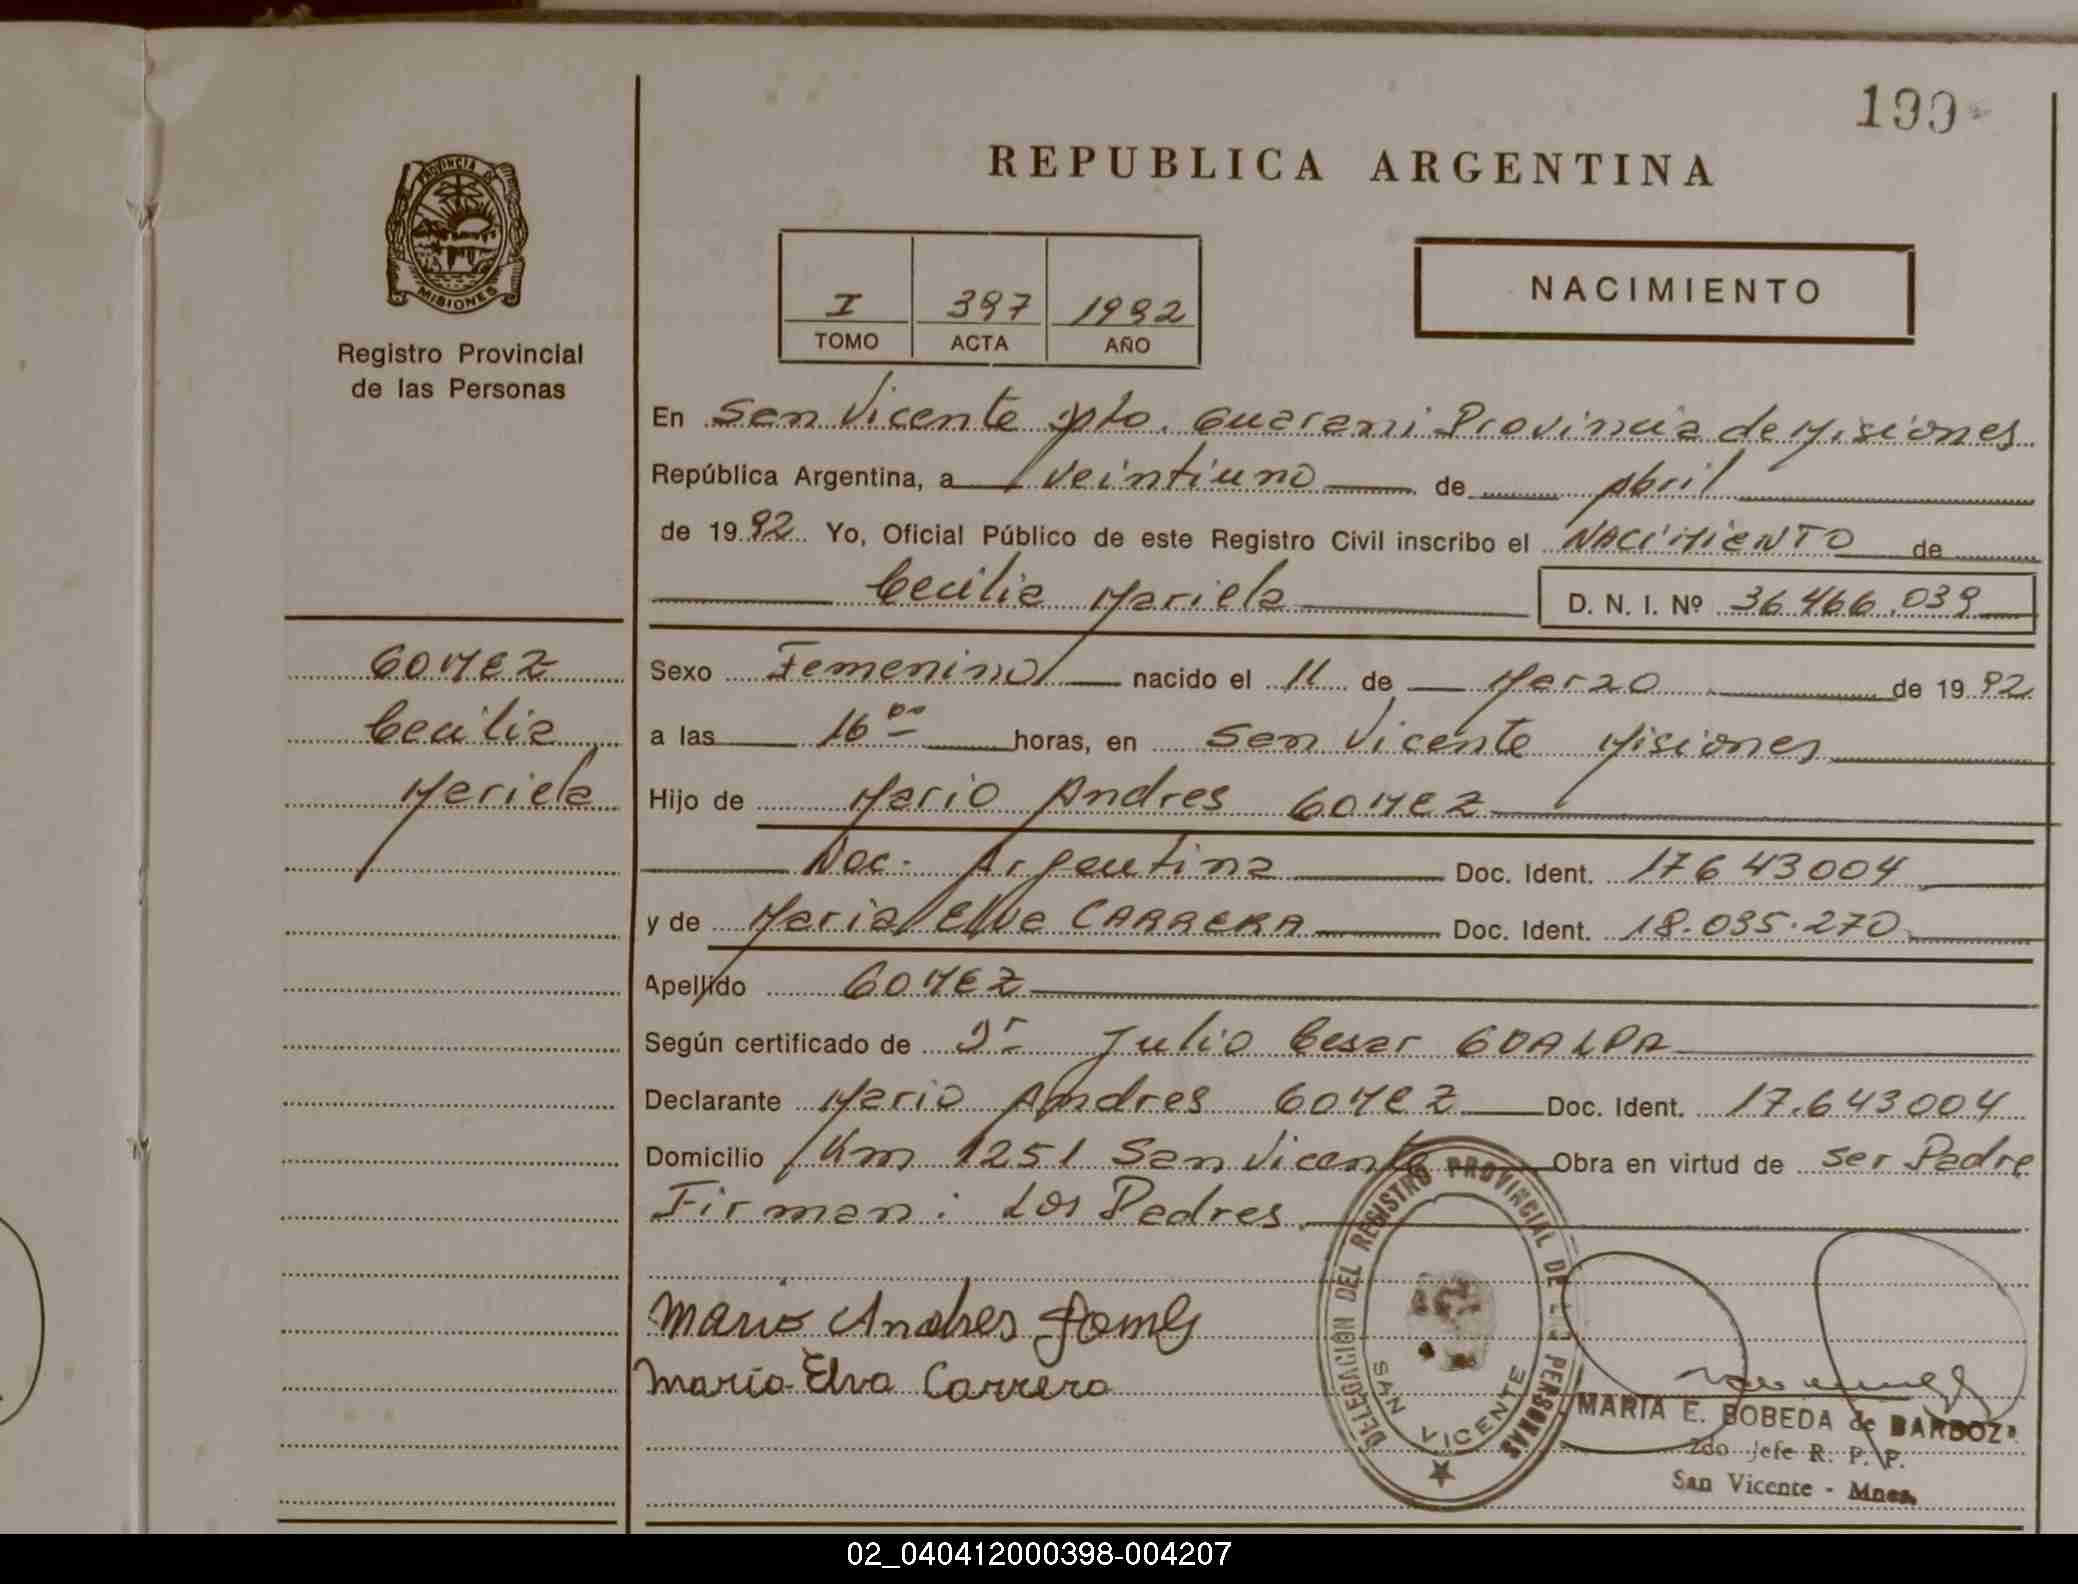 199
REPUBLICA ARGENTINA
PROVINCIA DE
MISIONES
Registro Provincial
de las Personas
I 397 1992
TOMO ACTA AÑO
NACIMIENTO
En San Vicente Dpto. Guarani Provincia de Misiones
República Argentina, a veintiuno de Abril
de 1992 Yo, Oficial Público de este Registro Civil inscribo el NACIMIENTO de
Cecilia Mariela D. N. I. Nº 36.466.039
GOMEZ
Cecilia
Mariela
Sexo Femenino nacido el 11 de Marzo de 1992
a las 16 00 horas, en San Vicente Misiones
Hijo de Mario Andres GOMEZ
Nac. Argentina Doc. Ident. 17643004
y de Maria Elva CARRERA Doc. Ident. 18.035.270
Apellido GOMEZ
Según certificado de Dr Julio Cesar
Declarante Mario Andres GOMEZ Doc. Ident. 17.643004
Domicilio Km 1251 San Vicente Obra en virtud de ser Padre
Firman: Los Padres
Mario Andres Gomez
Maria Elva Carrera
DELEGACION DEL REGISTRO PROVINCIAL DE LAS PERSONAS
SAN VICENTE
MARIA E. BOBEDA de BARBOZA
2do Jefe R. P. P.
San Vicente - Mnes.
02_040412000398-004207